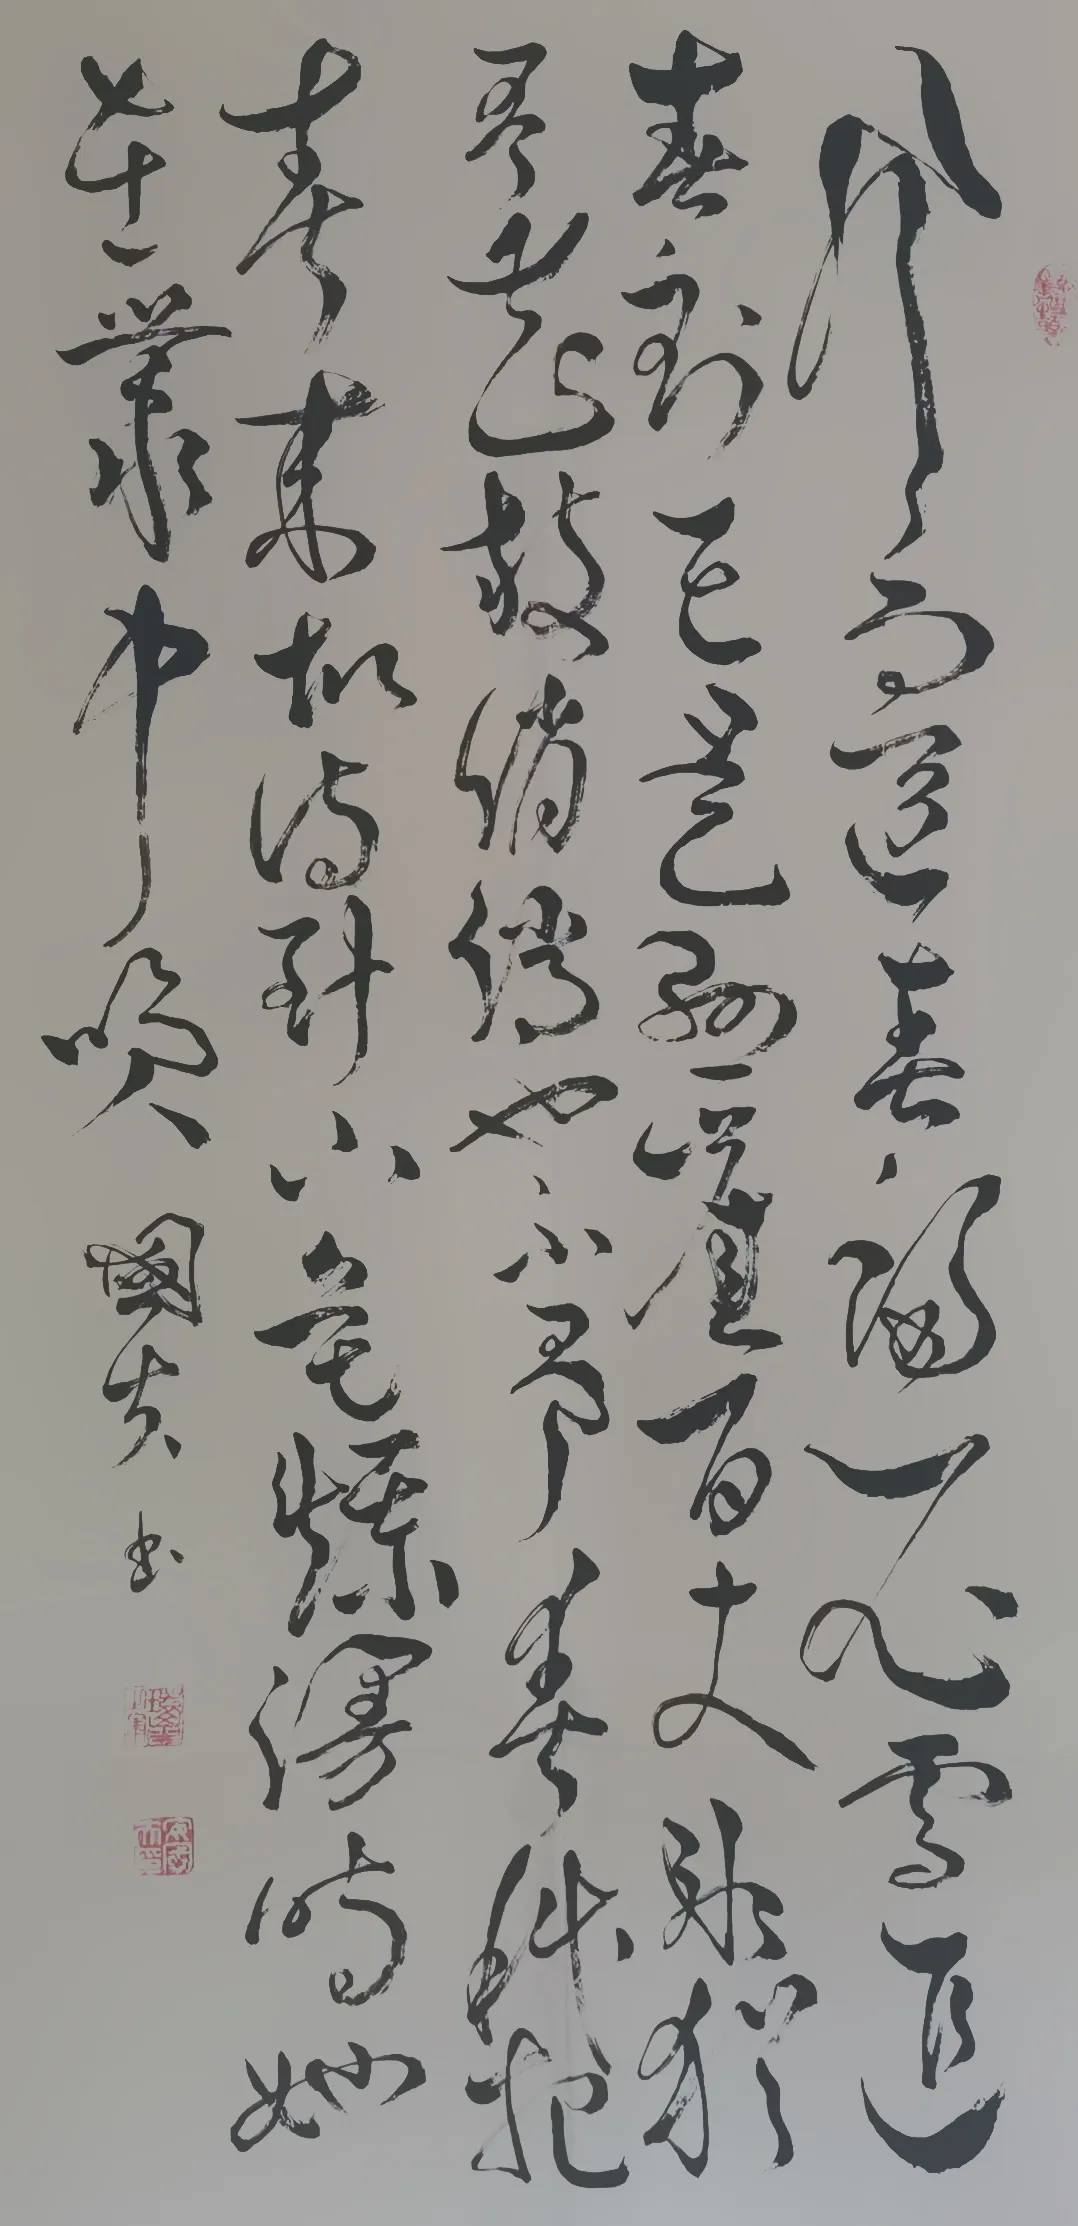 风雨送春归飞雪迎
春到已是悬崖百丈冰犹
有花枝俏俏也不争春只把
春来报待到山花爛漫时她
在叢中笑 國夫书